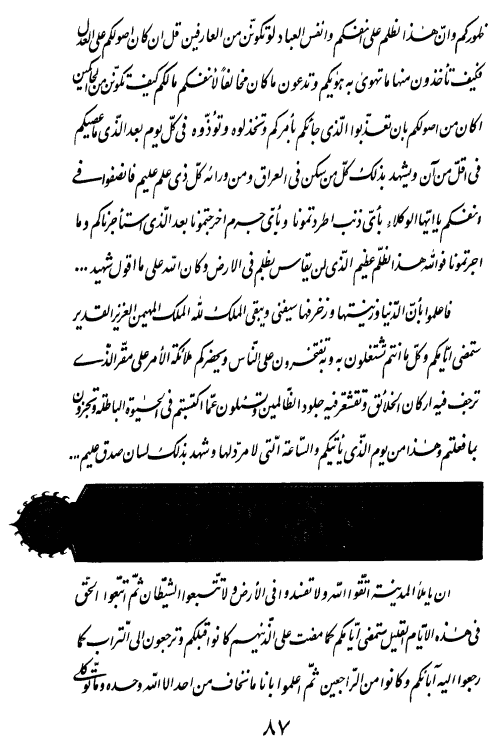 ظهوركم وانّ هذا لظلم على انفسكم وانفس العباد لو تكوننّ من العارفين قل ان كان اصولكم على العدل
فكيف تأخذون منها ما تهوى به هويكم وتدعون ما كان مخالفاً لأنفسكم ما لكم كيف تكوننّ من الحاكمين
اكان من اصولكم بان تعذّبوا الّذى جائكم بأمركم وتخذلوه وتؤذّوه فى كلّ يوم بعد الّذى ما عصيكم
فى اقلّ من آن ويشهد بذلك كلّ من سكن فى العراق ومن ورائه كلّ ذى علم عليم فانصفوا فى
انفسكم يا ايّها الوكلاء بأىّ ذنب اطردتمونا وبأىّ جرم اخرجتمونا بعد الّذى استأجرناكم وما
اجرتمونا فوالله هذا لظلم عظيم الّذى لن يقاس بظلم فى الارض وكان الله على ما اقول شهيد ...
فاعلموا بأنّ الدّنيا وزينتها وزخرفها سيفنى ويبقى الملك لله الملك المهيمن العزيز القدير
ستمضى ايّامكم وكلّ ما انتم تشتغلون به وبه تفتخرون على النّاس ويحضركم ملائكة الأمر على مقرّ الّذى
ترجف فيه اركان الخلائق وتقشعرّ فيه جلود الظّالمين وتسئلون عمّا اكتسبتم فى الحيوة الباطلة وتجزون
بما فعلتم وهذا من يوم الّذى يأتيكم والسّاعة الّتى لا مردّ لها وشهد بذلك لسان صدق عليم ...
ان يا ملأ المدينة اتّقوا الله ولا تفسدوا فى الأرض ولا تتّبعوا الشّيطان ثمّ اتّبعوا الحقّ
فى هذه الايّام القليل ستمضى ايّامكم كما مضت على الّذينهم كانوا قبلكم وترجعون الى التّراب كما
رجعوا اليه آبائكم وكانوا من الرّاجعين ثمّ اعلموا بانّا ما نخاف من احد الا الله وحده وما توكّلى
٨٧